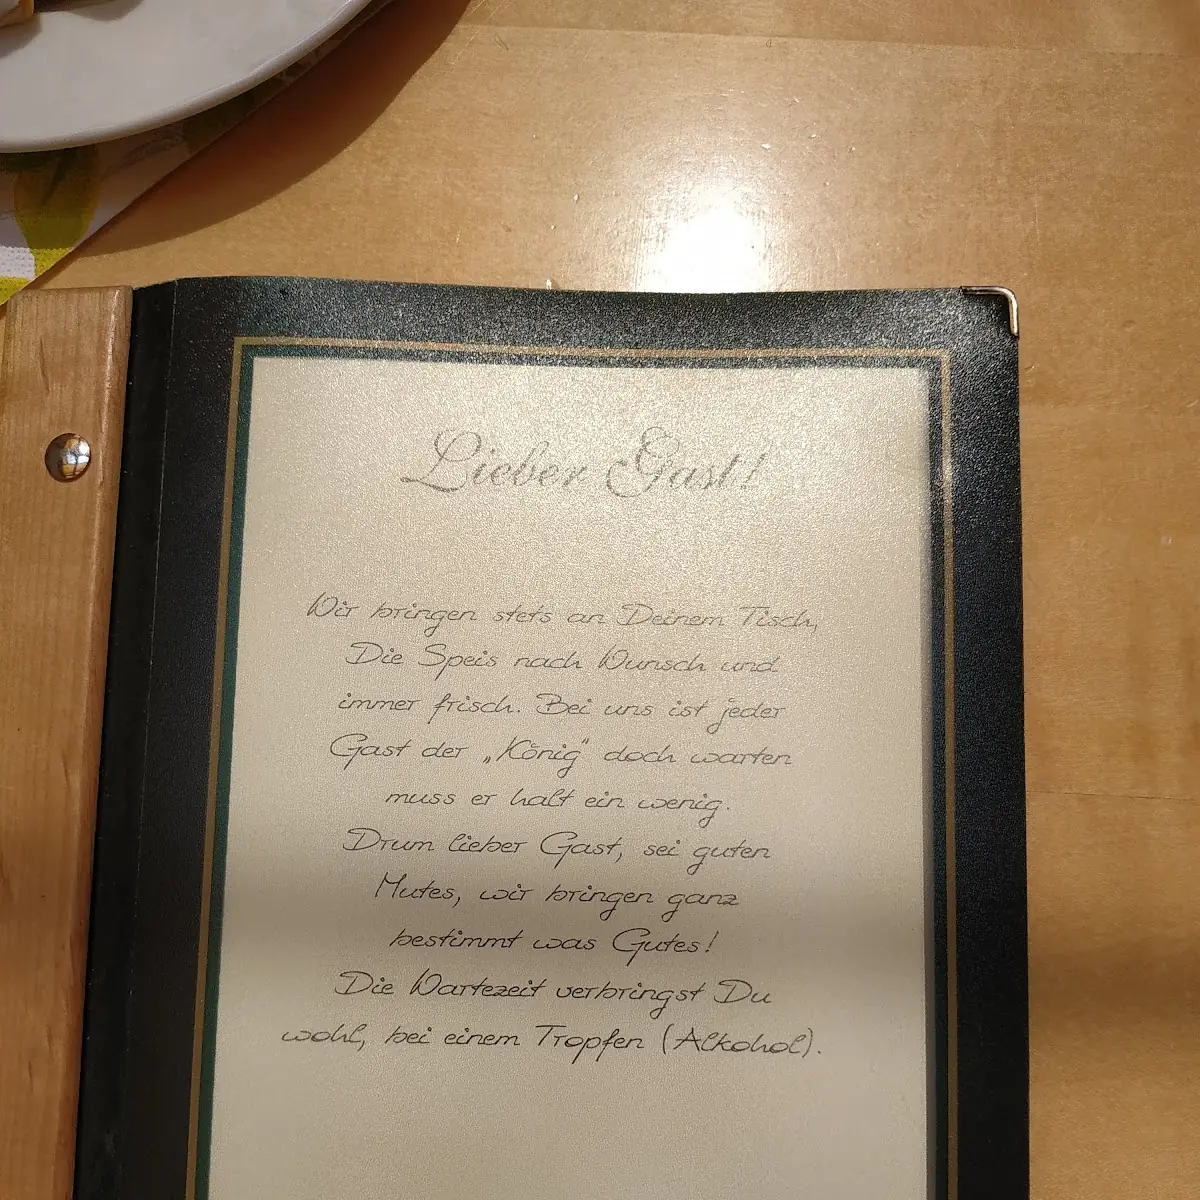 Lieber Gast!
Wir bringen stets an Deinem Tisch,
Die Speis nach Wunsch und
immer frisch. Bei uns ist jeder
Gast der „König" doch warten
muss er halt ein wenig.
Drum lieber Gast, sei guten
Mutes, wir bringen ganz
bestimmt was Gutes!
Die Wartezeit verbringst Du
wohl, bei einem Tropfen (Alkohol).